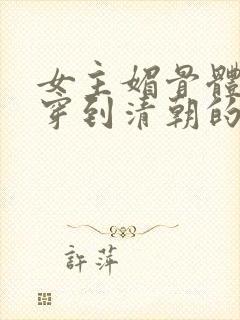 女主媚骨體
穿到清朝的
許萍